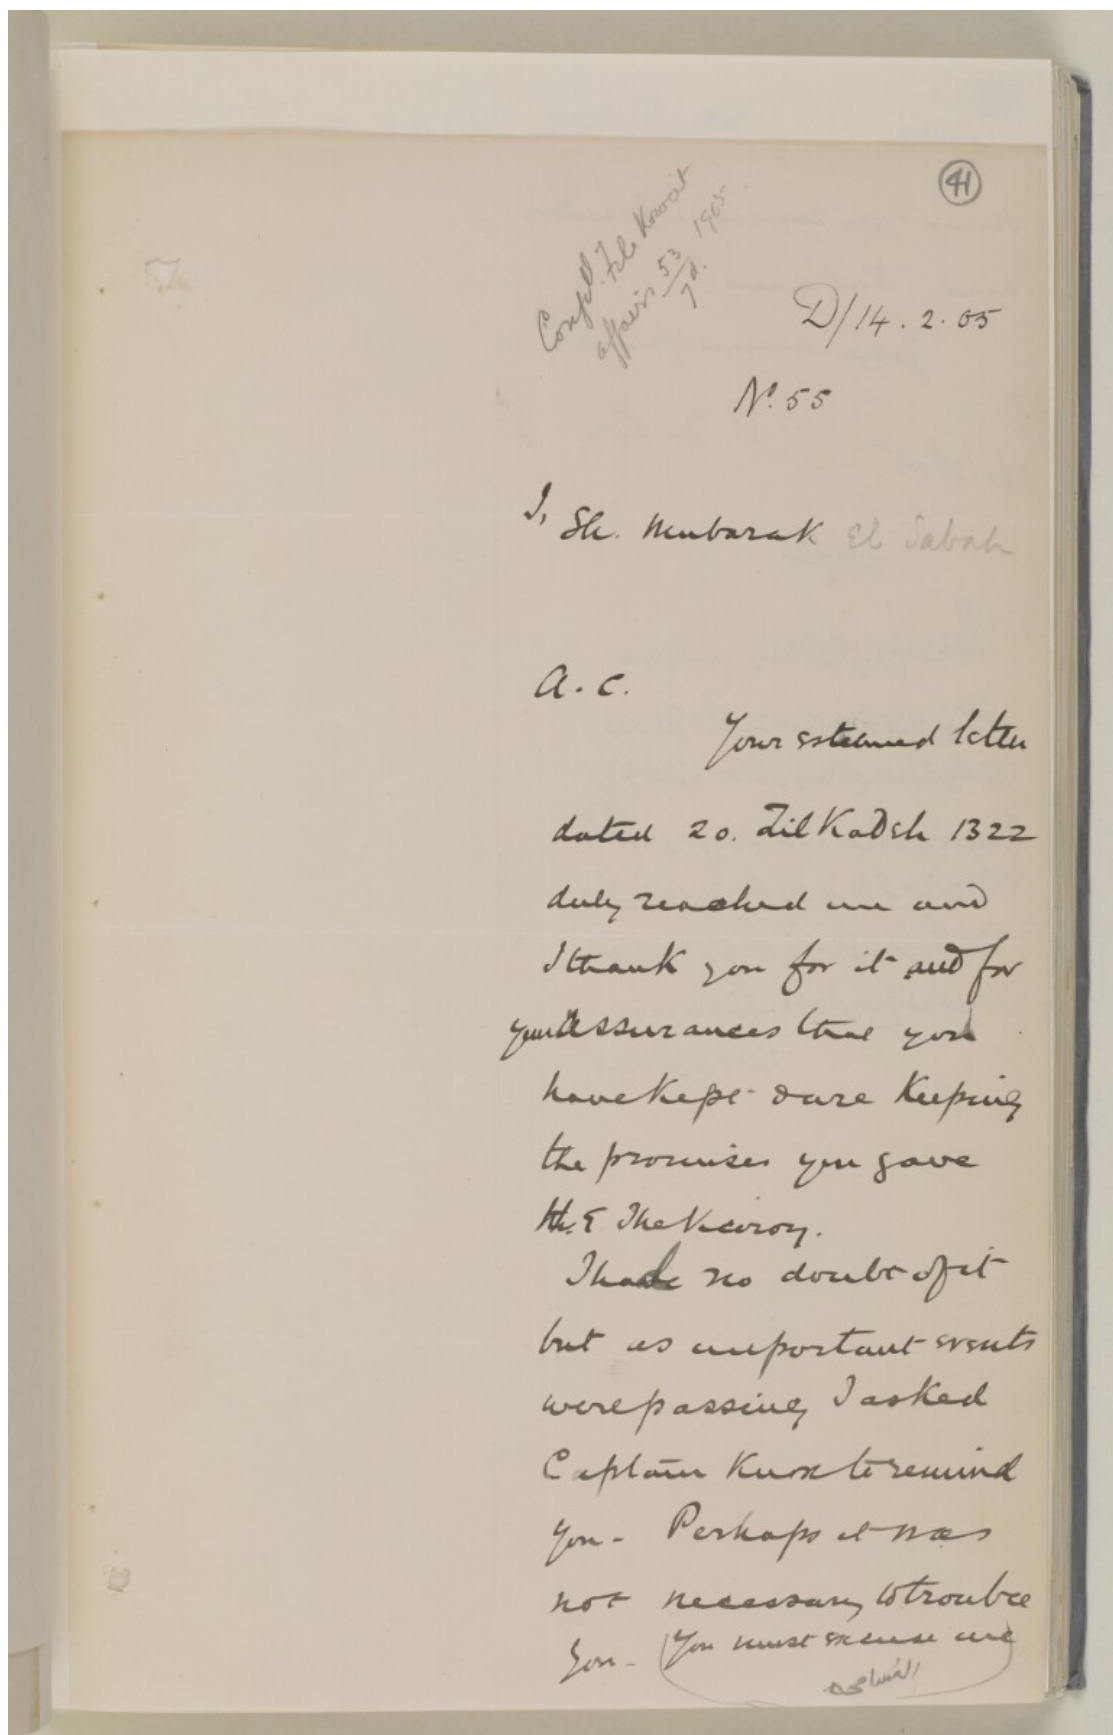 41
Confl. File Kowait
affairs 53/7d. 1905
D/14.2.05
No. 55
To, Sh. Mubarak El Sabah
A.C.
Your esteemed letter
dated 20. Zil Kadeh 1322
duly reached me and
I thank you for it and for
your assurances that you
have kept & are keeping
the promises you gave
H.E The Viceroy.
I had no doubt of it
but as important events
were passing I asked
Captain Knox to remind
you - Perhaps it was
not necessary to trouble
you - (You must excuse me)